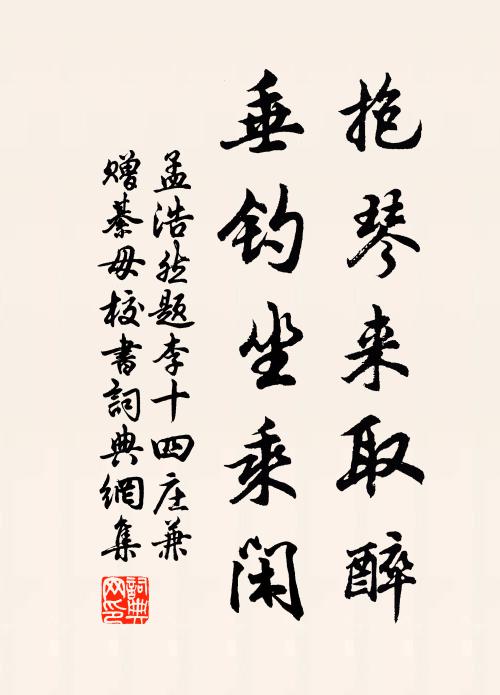 抱琴来取醉
垂钓坐乘闲
孟浩然题李十四庄兼
赠綦毋校書詞典網集
詞典网印